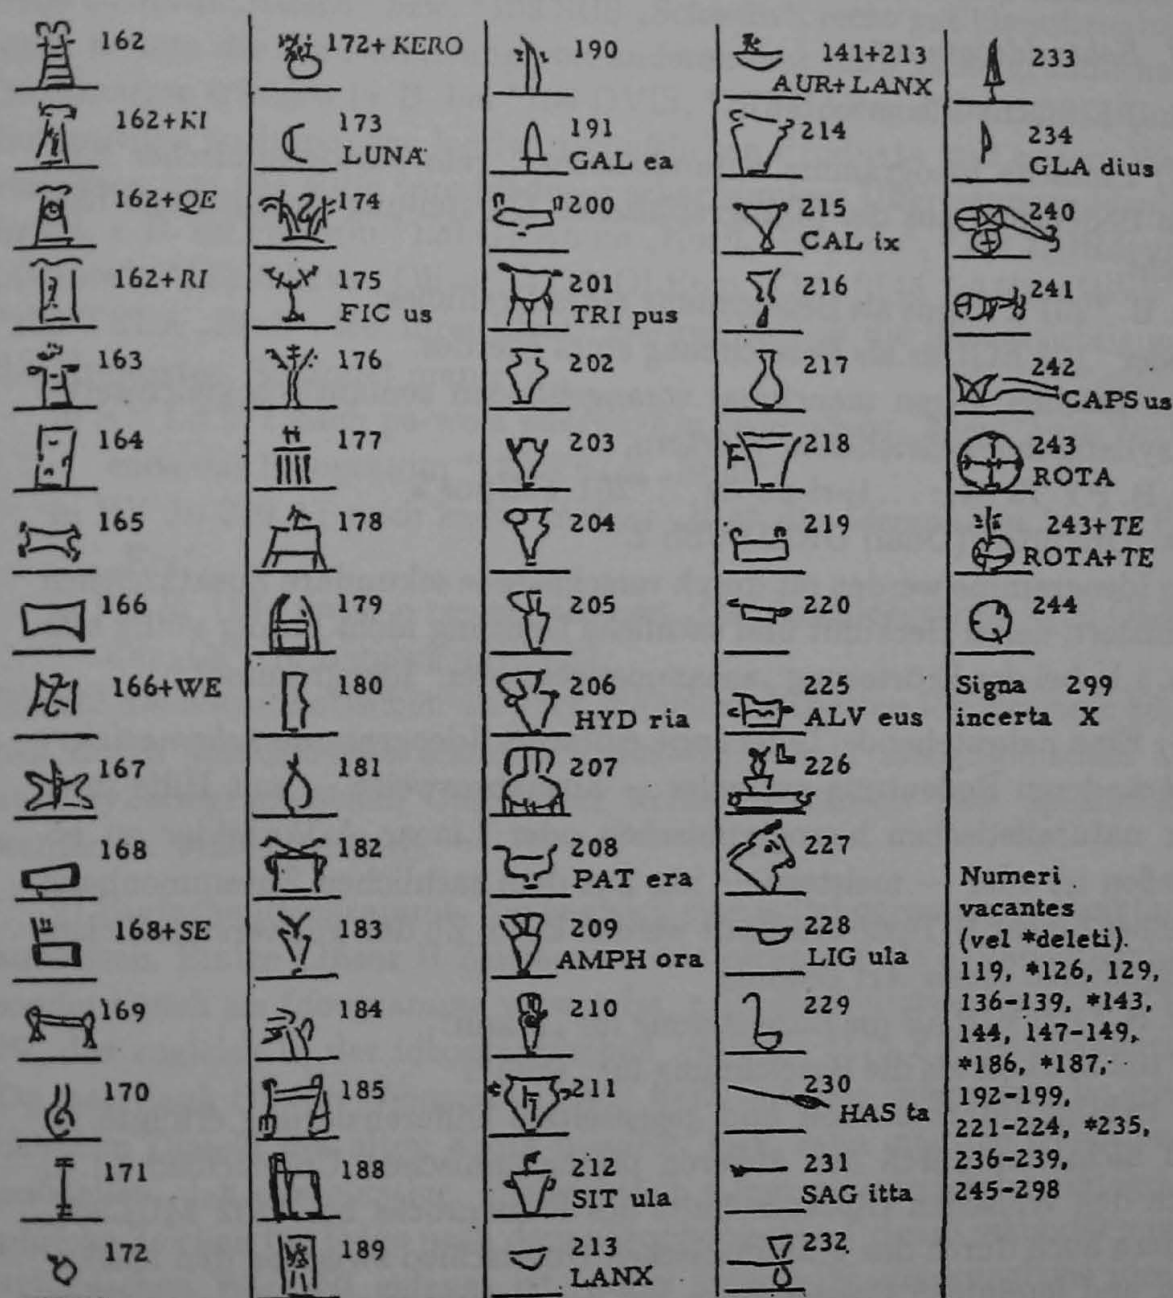 162
162+KI
162+QE
162+RI
163
164
165
166
166+WE
167
168
168+SE
169
170
171
172
172+KERO
173
LUNA
174
175
FIC us
176
177
178
179
180
181
182
183
184
185
188
189
190
191
GAL ea
200
201
TRI pus
202
203
204
205
206
HYD ria
207
208
PAT era
209
AMPH ora
210
211
212
SIT ula
213
LANX
141+213
AUR+LANX
214
215
CAL ix
216
217
218
219
220
225
ALV eus
226
227
228
LIG ula
229
230
HAS ta
231
SAG itta
232
233
234
GLA dius
240
241
242
CAPS us
243
ROTA
243+TE
ROTA+TE
244
Signa 299
incerta X
Numeri
vacantes
(vel *deleti).
119, *126, 129,
136-139, *143,
144, 147-149,
*186, *187,
192-199,
221-224, *235,
236-239,
245-298